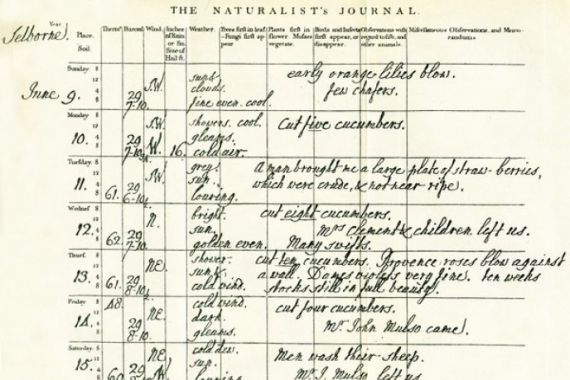 THE NATURALIST'S JOURNAL.
Year
Selborne.
Place.
Soil.
Therm.r Barom.r Wind. Inches of Rain or Sn. Size of Hail st. Weather. Trees first in leaf - Fungi first appear Plants first in flower. Mosses vegetate. Birds and Insects first appear, or disappear. Observations with regard to fish, and other animals. Miscellaneous Observations, and Memorandums
Sunday 8
June 9.
12
4
8
29
7-10.
S.W.
sun &
clouds.
fine even. cool.
early orange-lilies blow.
few chafers.
Monday 8
10.
12
4
8
29
7-10.
S.W.
W.
16.
showers. cool.
gleams.
cold air.
Cut five cucumbers.
Tuesday. 8
11.
12
4
8
61.
29
6-10.
S.W.
grey.
sun.
louring.
A man brought me a large plate of straw-berries,
which were crude, & not near ripe.
Wednesd 8
12.
12
4
8
62.
29
7-10.
N.
bright.
sun.
golden even.
cut eight cucumbers.
Mrs Clement & children left us.
Many swifts.
Thurs. 8
13.
12
4
8
61.
29
8-10.
NE.
shower.
sun &
cold wind.
cut ten cucumbers. Provence roses blow against
a wall. Dames violets very fine. ten weeks
stocks still in full beauty.
Friday 8
14.
12
4
8
48.
29
8-10.
NE.
cold wind.
dark.
gleams.
cut four cucumbers.
Mr John Mulso came.
Saturday. 8
15.
12
4
8
60.
29
NE.
S.W.
cold dew.
sun.
louring
Men wash their sheep.
Mr J. Mulso left us